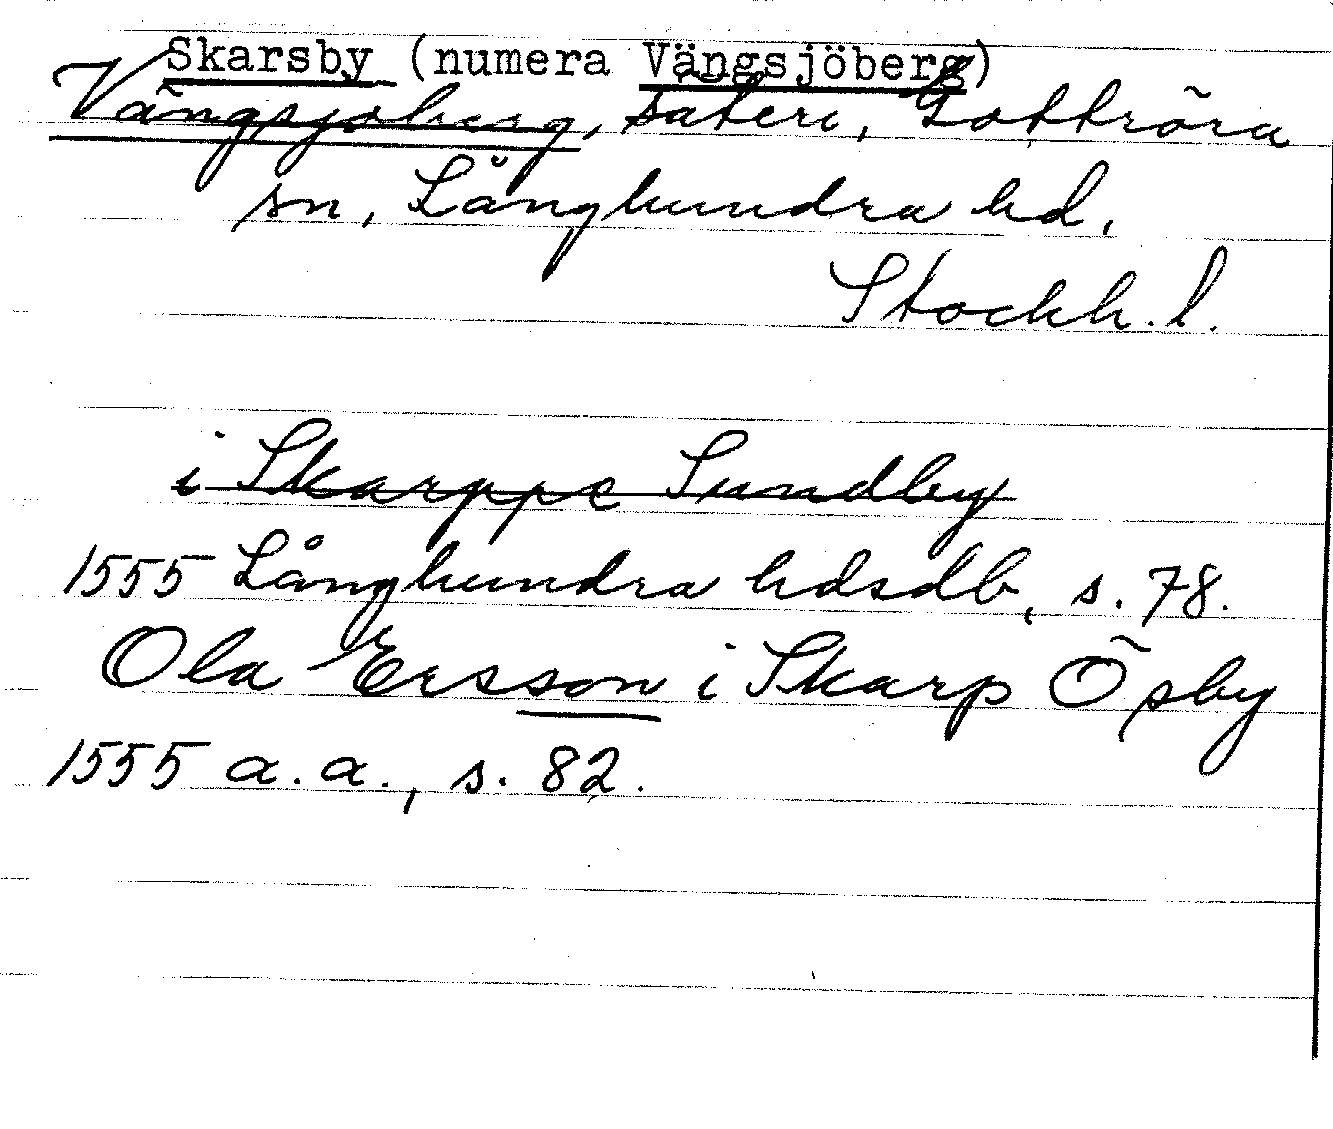 Skarsby (numera Vängsjöberg)
Vängsjöberg, säteri, Gottröra
sn, Långhundra hd,
Stockh. l.
i Skarppe Sundby
1555 Långhundra hdsdb, s. 78.
Ola Ersson i Skarp Ösby
1555 a.a., s. 82.